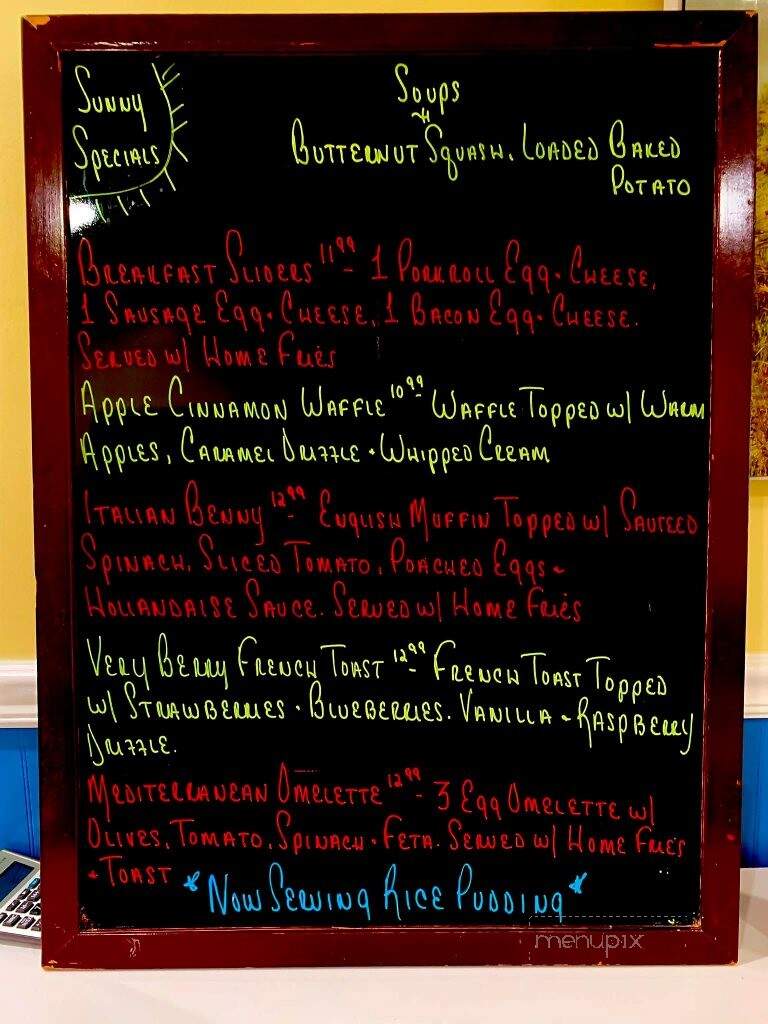 Sunny
Specials
Soups
Butternut Squash, Loaded Baked
Potato
Breakfast Sliders 11.99 - 1 Porkroll Egg + Cheese,
1 Sausage Egg + Cheese, 1 Bacon Egg + Cheese.
Served w/ Home Fries
Apple Cinnamon Waffle 10.99 - Waffle Topped w/ Warm
Apples, Caramel Drizzle + Whipped Cream
Italian Benny 12.99 - English Muffin Topped w/ Sauteed
Spinach, Sliced Tomato, Poached Eggs +
Hollandaise Sauce. Served w/ Home Fries
Very Berry French Toast 12.99 - French Toast Topped
w/ Strawberries + Blueberries. Vanilla + Raspberry
Drizzle.
Mediterranean Omelette 12.99 - 3 Egg Omelette w/
Olives, Tomato, Spinach + Feta. Served w/ Home Fries
+ Toast
*Now Serving Rice Pudding*
menupix